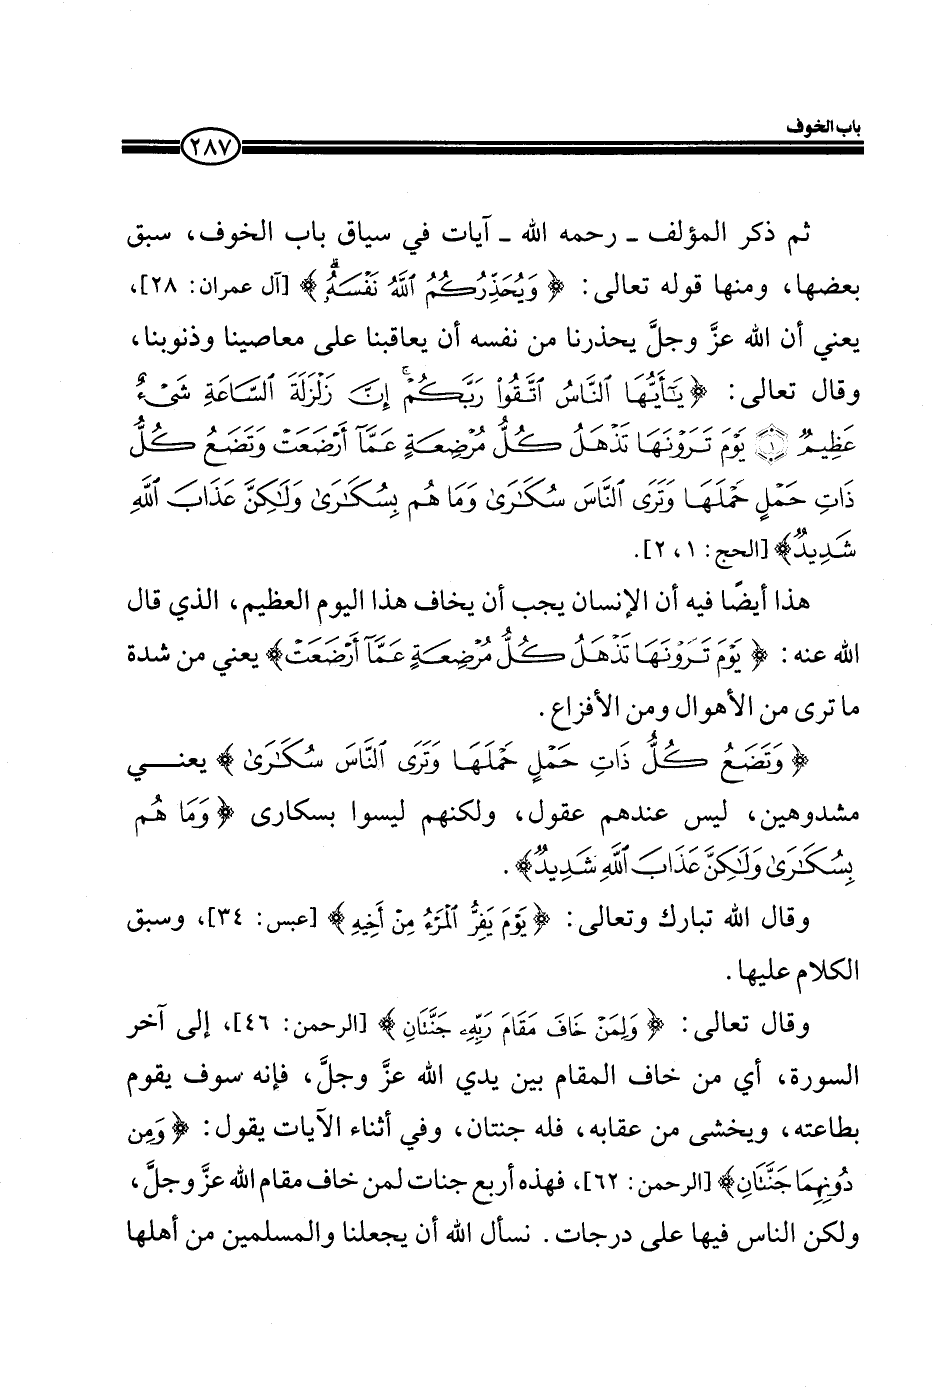 باب الخوف
٢٨٧
ثم ذكر المؤلف ـ رحمه الله ـ آيات في سياق باب الخوف، سبق
بعضها، ومنها قوله تعالى: ﴿ وَيُحَذِّرُكُمُ ٱللَّهُ نَفْسَهُۥۗ ﴾ [آل عمران: ٢٨]،
يعني أن الله عزَّ وجلَّ يحذرنا من نفسه أن يعاقبنا على معاصينا وذنوبنا،
وقال تعالى: ﴿ يَـٰٓأَيُّهَا ٱلنَّاسُ ٱتَّقُوا۟ رَبَّكُمْ ۚ إِنَّ زَلْزَلَةَ ٱلسَّاعَةِ شَىْءٌ
عَظِيمٌ ۝١ يَوْمَ تَرَوْنَهَا تَذْهَلُ كُلُّ مُرْضِعَةٍ عَمَّآ أَرْضَعَتْ وَتَضَعُ كُلُّ
ذَاتِ حَمْلٍ حَمْلَهَا وَتَرَى ٱلنَّاسَ سُكَـٰرَىٰ وَمَا هُم بِسُكَـٰرَىٰ وَلَـٰكِنَّ عَذَابَ ٱللَّهِ
شَدِيدٌ﴾ [الحج: ١، ٢].
هذا أيضًا فيه أن الإنسان يجب أن يخاف هذا اليوم العظيم، الذي قال
الله عنه: ﴿ يَوْمَ تَرَوْنَهَا تَذْهَلُ كُلُّ مُرْضِعَةٍ عَمَّآ أَرْضَعَتْ﴾ يعني من شدة
ما ترى من الأهوال ومن الأفزاع.
﴿ وَتَضَعُ كُلُّ ذَاتِ حَمْلٍ حَمْلَهَا وَتَرَى ٱلنَّاسَ سُكَـٰرَىٰ ﴾ يعنـــي
مشدوهين، ليس عندهم عقول، ولكنهم ليسوا بسكارى ﴿ وَمَا هُم
بِسُكَـٰرَىٰ وَلَـٰكِنَّ عَذَابَ ٱللَّهِ شَدِيدٌ﴾.
وقال الله تبارك وتعالى: ﴿ يَوْمَ يَفِرُّ ٱلْمَرْءُ مِنْ أَخِيهِ ﴾ [عبس: ٣٤]، وسبق
الكلام عليها.
وقال تعالى: ﴿ وَلِمَنْ خَافَ مَقَامَ رَبِّهِۦ جَنَّتَانِ ﴾ [الرحمن: ٤٦]، إلى آخر
السورة، أي من خاف المقام بين يدي الله عزَّ وجلَّ، فإنه سوف يقوم
بطاعته، ويخشى من عقابه، فله جنتان، وفي أثناء الآيات يقول: ﴿ وَمِن
دُونِهِمَا جَنَّتَانِ﴾ [الرحمن: ٦٢]، فهذه أربع جنات لمن خاف مقام الله عزَّ وجلَّ،
ولكن الناس فيها على درجات. نسأل الله أن يجعلنا والمسلمين من أهلها